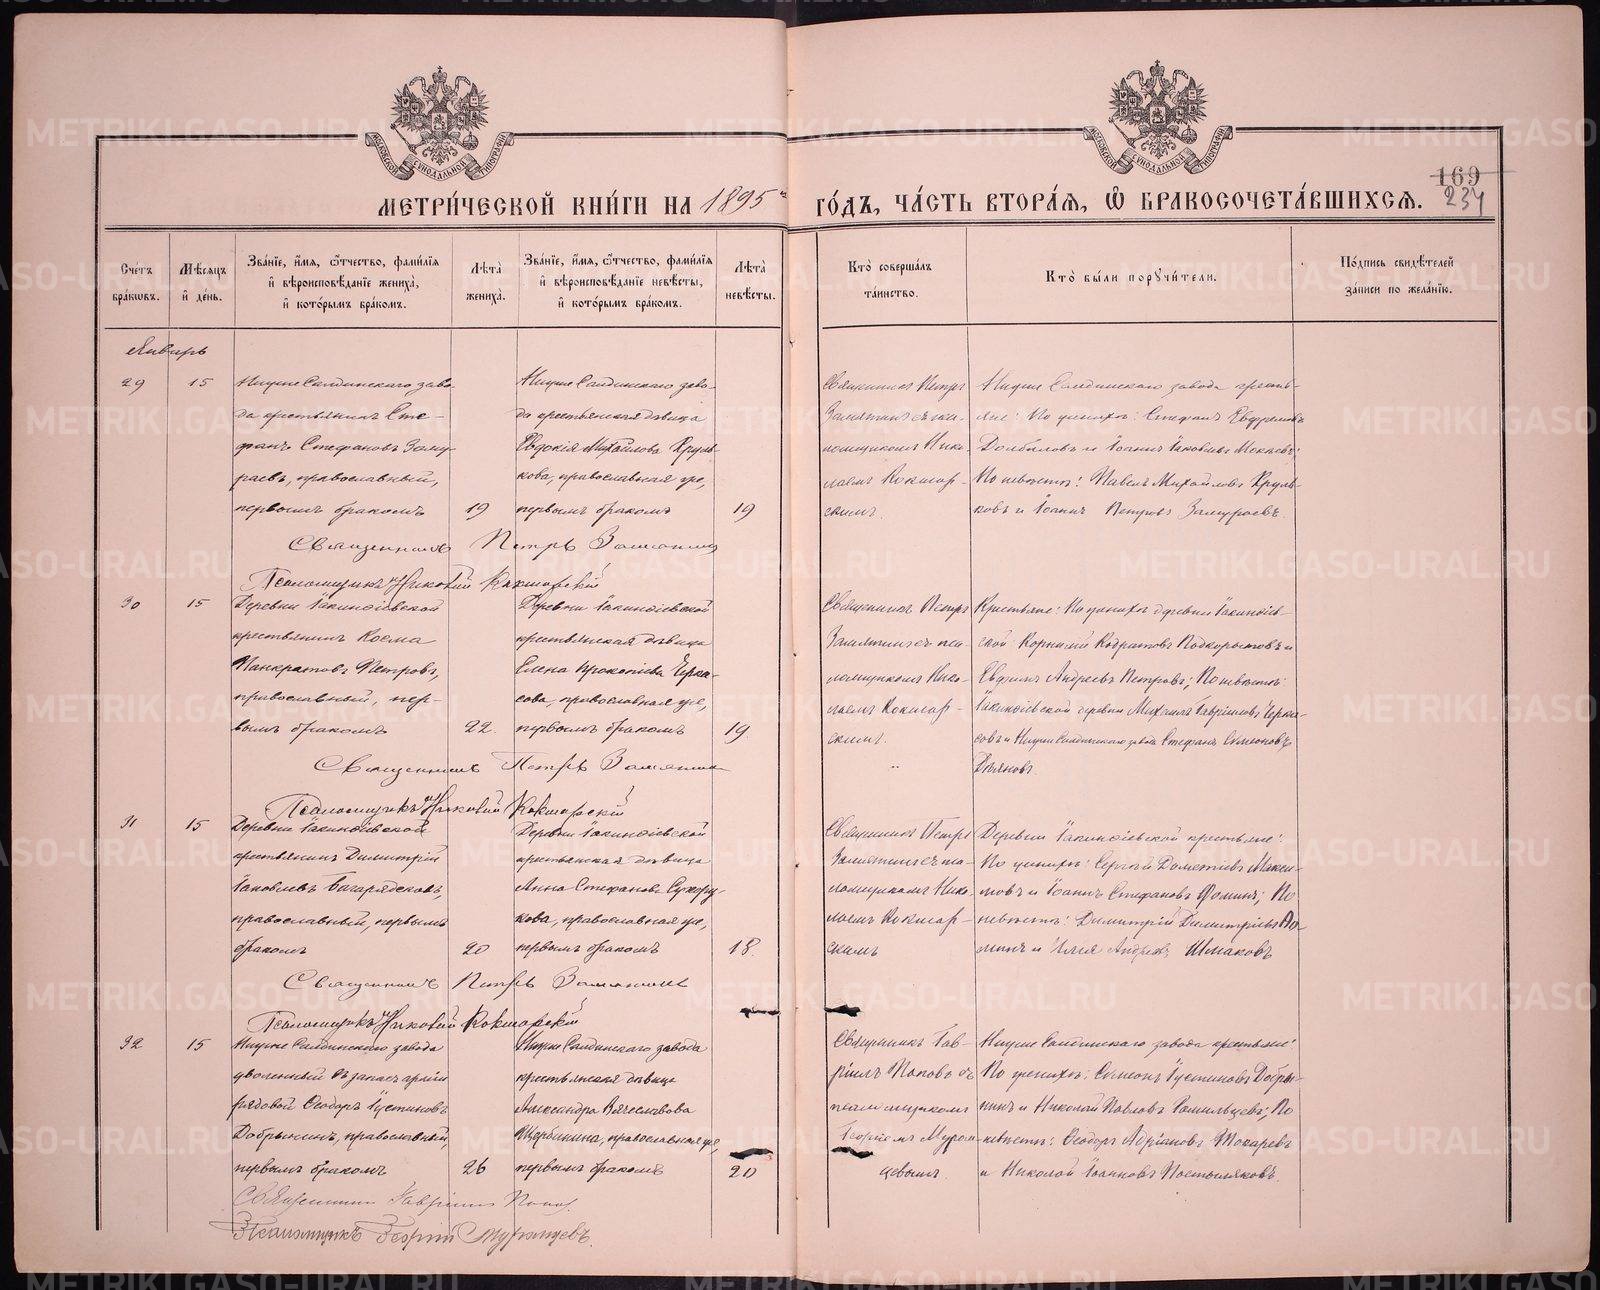 МОСКОВСКОЙ СУНОДАЛЬНОЙ ТИПОГРАФІИ
МОСКОВСКОЙ СУНОДАЛЬНОЙ ТИПОГРАФІИ
169
234
МЕТРИ́ЧЕСКОЙ КНИ́ГИ НА 1895й ГО́ДЪ, ЧА́СТЬ ВТОРА́Я, Ѽ БРАКОСОЧЕТА́ВШИХСЯ.
Сче́тъ бра́ковъ.
Мѣ́сяцъ и҆ де́нь.
Зва́нїе, и҆́мя, ѻ҆́тчество, фами́лїя и҆ вѣроисповѣ́данїе жениха̀, и҆ кото́рымъ бра́комъ.
Лѣ́та жениха̀.
Зва́нїе, и҆́мя, ѻ҆́тчество, фами́лїя и҆ вѣроисповѣ́данїе невѣ́сты, и҆ кото́рымъ бра́комъ.
Лѣ́та невѣ́сты.
Кто̀ соверша́лъ та́инство.
Кто̀ бы́ли поручи́тели.
По́дпись свидѣ́телей за́писи по жела́нїю.
Январь
29
15
Нижне Салдинскаго заво-
да крестьянинъ Сте-
фанъ Стефановъ Заму-
раевъ, православный,
первымъ бракомъ
19
Нижне Салдинскаго заво-
да крестьянская дѣвица
Евдокія Михайлова Круль-
кова, православная же,
первымъ бракомъ
19
Священникъ Петръ
Замятинъ съ пса-
ломщикомъ Нико-
лаемъ Кокшар-
скимъ.
Нижне Салдинскаго завода кресть-
яне: По женихѣ: Стефанъ Евфремовъ
Долбиловъ и Іоаннъ Іаковлевъ Мокѣевъ:
По невѣстѣ: Павелъ Михайловъ Круль-
ковъ и Іоаннъ Петровъ Замураевъ.
Священникъ Петръ Замятинъ
Псаломщикъ Николай Кокшарскій
30
15
Деревни Іакинѳіевской
крестьянинъ Косма
Панкратовъ Петровъ,
православный, пер-
вымъ бракомъ
22.
Деревни Іакинѳіевской
крестьянская дѣвица
Елена Прокопіева Черка-
сова, православная же,
первымъ бракомъ
19.
Священникъ Петръ
Замятинъ съ пса-
ломщикомъ Нико-
лаемъ Кокшар-
скимъ.
Крестьяне: По женихѣ деревни Іакинѳіев-
ской Корнилій Кодратовъ Подкорытовъ и
Евфимъ Андреевъ Петровъ; По невѣстѣ:
Іакинѳіевской деревни Михаилъ Гавріиловъ Черка-
совъ и Нижне Салдинскаго завода Стефанъ Симеоновъ
Дѣяновъ.
Священникъ Петръ Замятинъ
Псаломщикъ Николай Кокшарскій
31
15
Деревни Іакинѳіевской
крестьянинъ Димитрій
Іаковлевъ Багарядсковъ,
православный, первымъ
бракомъ
20
Деревни Іакинѳіевской
крестьянская дѣвица
Анна Стефанова Сухору-
кова, православная же,
первымъ бракомъ
18.
Священникъ Петръ
Замятинъ съ пса-
ломщикомъ Нико-
лаемъ Кокшар-
скимъ
Деревни Іакинѳіевской крестьяне:
По женихѣ: Сергій Дометіевъ Макси-
мовъ и Іоаннъ Стефановъ Ѳоминъ; По
невѣстѣ: Димитрій Димитріевъ Ѳо-
минъ и Илія Андреевъ Шмаковъ
Священникъ Петръ Замятинъ
Псаломщикъ Николай Кокшарскій
32
15
Нижне Салдинскаго завода
уволенный въ запасъ арміи
рядовой Ѳеодоръ Іустиновъ
Добрынинъ, православный,
первымъ бракомъ
26
Нижне Салдинскаго завода
крестьянская дѣвица
Александра Вячеславова
Щербинина, православная же,
первымъ бракомъ
20
Священникъ Гав-
ріилъ Поповъ съ
псаломщикомъ
Георгіемъ Муром-
цевымъ.
Нижне Салдинскаго завода крестьяне:
По женихѣ: Симеонъ Іустиновъ Добры-
нинъ и Николай Павловъ Рашильцевъ; По
невѣстѣ: Ѳеодоръ Адріановъ Токаревъ
и Николай Іоанновъ Постыляковъ.
Священникъ Гавріилъ Поповъ
Псаломщикъ Георгій Муромцевъ.
METRIKI.GASO-URAL.RU